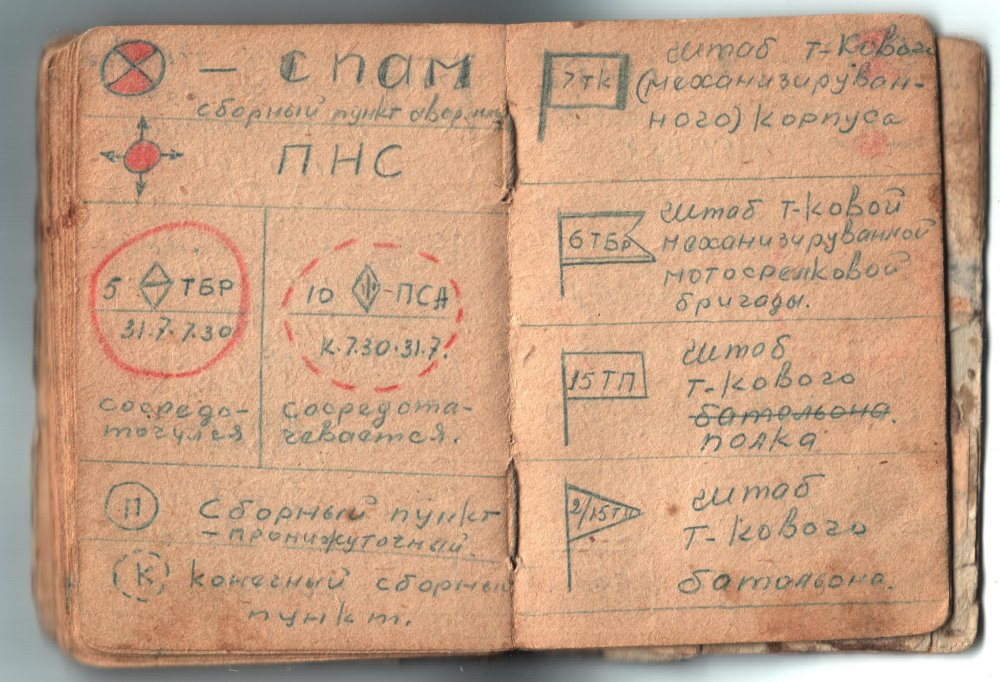 — СПАМ
сборный пункт авар. маш
ПНС
5 ТБР
31.7. 7.30
сосредо-
точился
10 -ПСА
К. 7.30. 31.7.
сосредота-
чевается.
П Сборный пункт
- пронижуточный.
К конечный сборный
пункт.
7ТК
штаб т-кового
(механизируван-
ного) корпуса
6 ТБр
штаб т-ковой
механизируванной
мотосрелковой
бригады.
15 ТП
штаб
т-кового
батальона.
полка
2/15Т
штаб
т-кового
батальона.